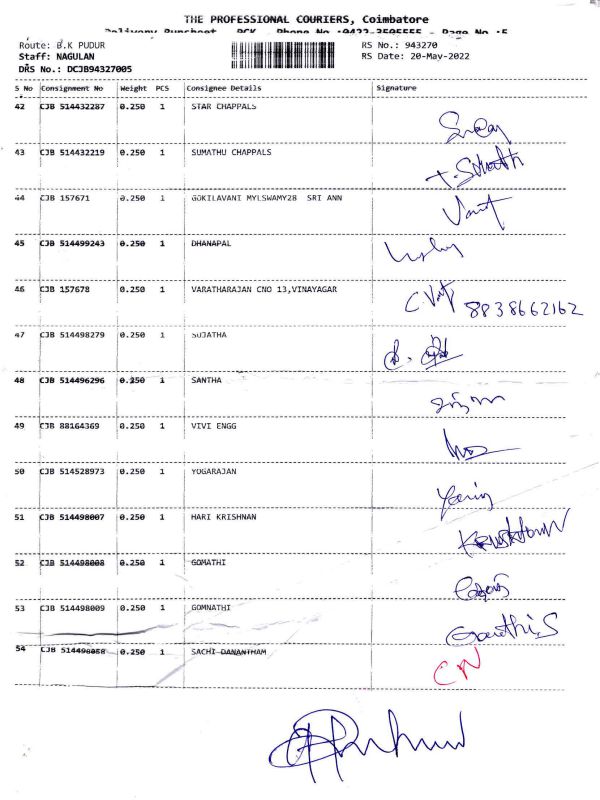 THE PROFESSIONAL COURIERS, Coimbatore
Delivery Runsheet PCK - Phone No :0422-3505555 - Page No :5
Route: B.K PUDUR RS No.: 943270
Staff: NAGULAN RS Date: 20-May-2022
DRS No.: DCJB94327005
S No Consignment No Weight PCS Consignee Details Signature
42 CJB 514432287 0.250 1 STAR CHAPPALS
43 CJB 514432219 0.250 1 SUMATHU CHAPPALS T. Sumathi
44 CJB 157671 0.250 1 GOKILAVANI MYLSWAMY28 SRI ANN
45 CJB 514499243 0.250 1 DHANAPAL
46 CJB 157678 0.250 1 VARATHARAJAN CNO 13,VINAYAGAR 8838662162
47 CJB 514498279 0.250 1 SUJATHA
48 CJB 514496296 0.250 1 SANTHA
49 CJB 88164369 0.250 1 VIVI ENGG
50 CJB 514528973 0.250 1 YOGARAJAN
51 CJB 514498007 0.250 1 HARI KRISHNAN
52 CJB 514498008 0.250 1 GOMATHI
53 CJB 514498009 0.250 1 GOMNATHI Gomthi.S
54 CJB 514498058 0.250 1 SACHI DANANTHAM CN